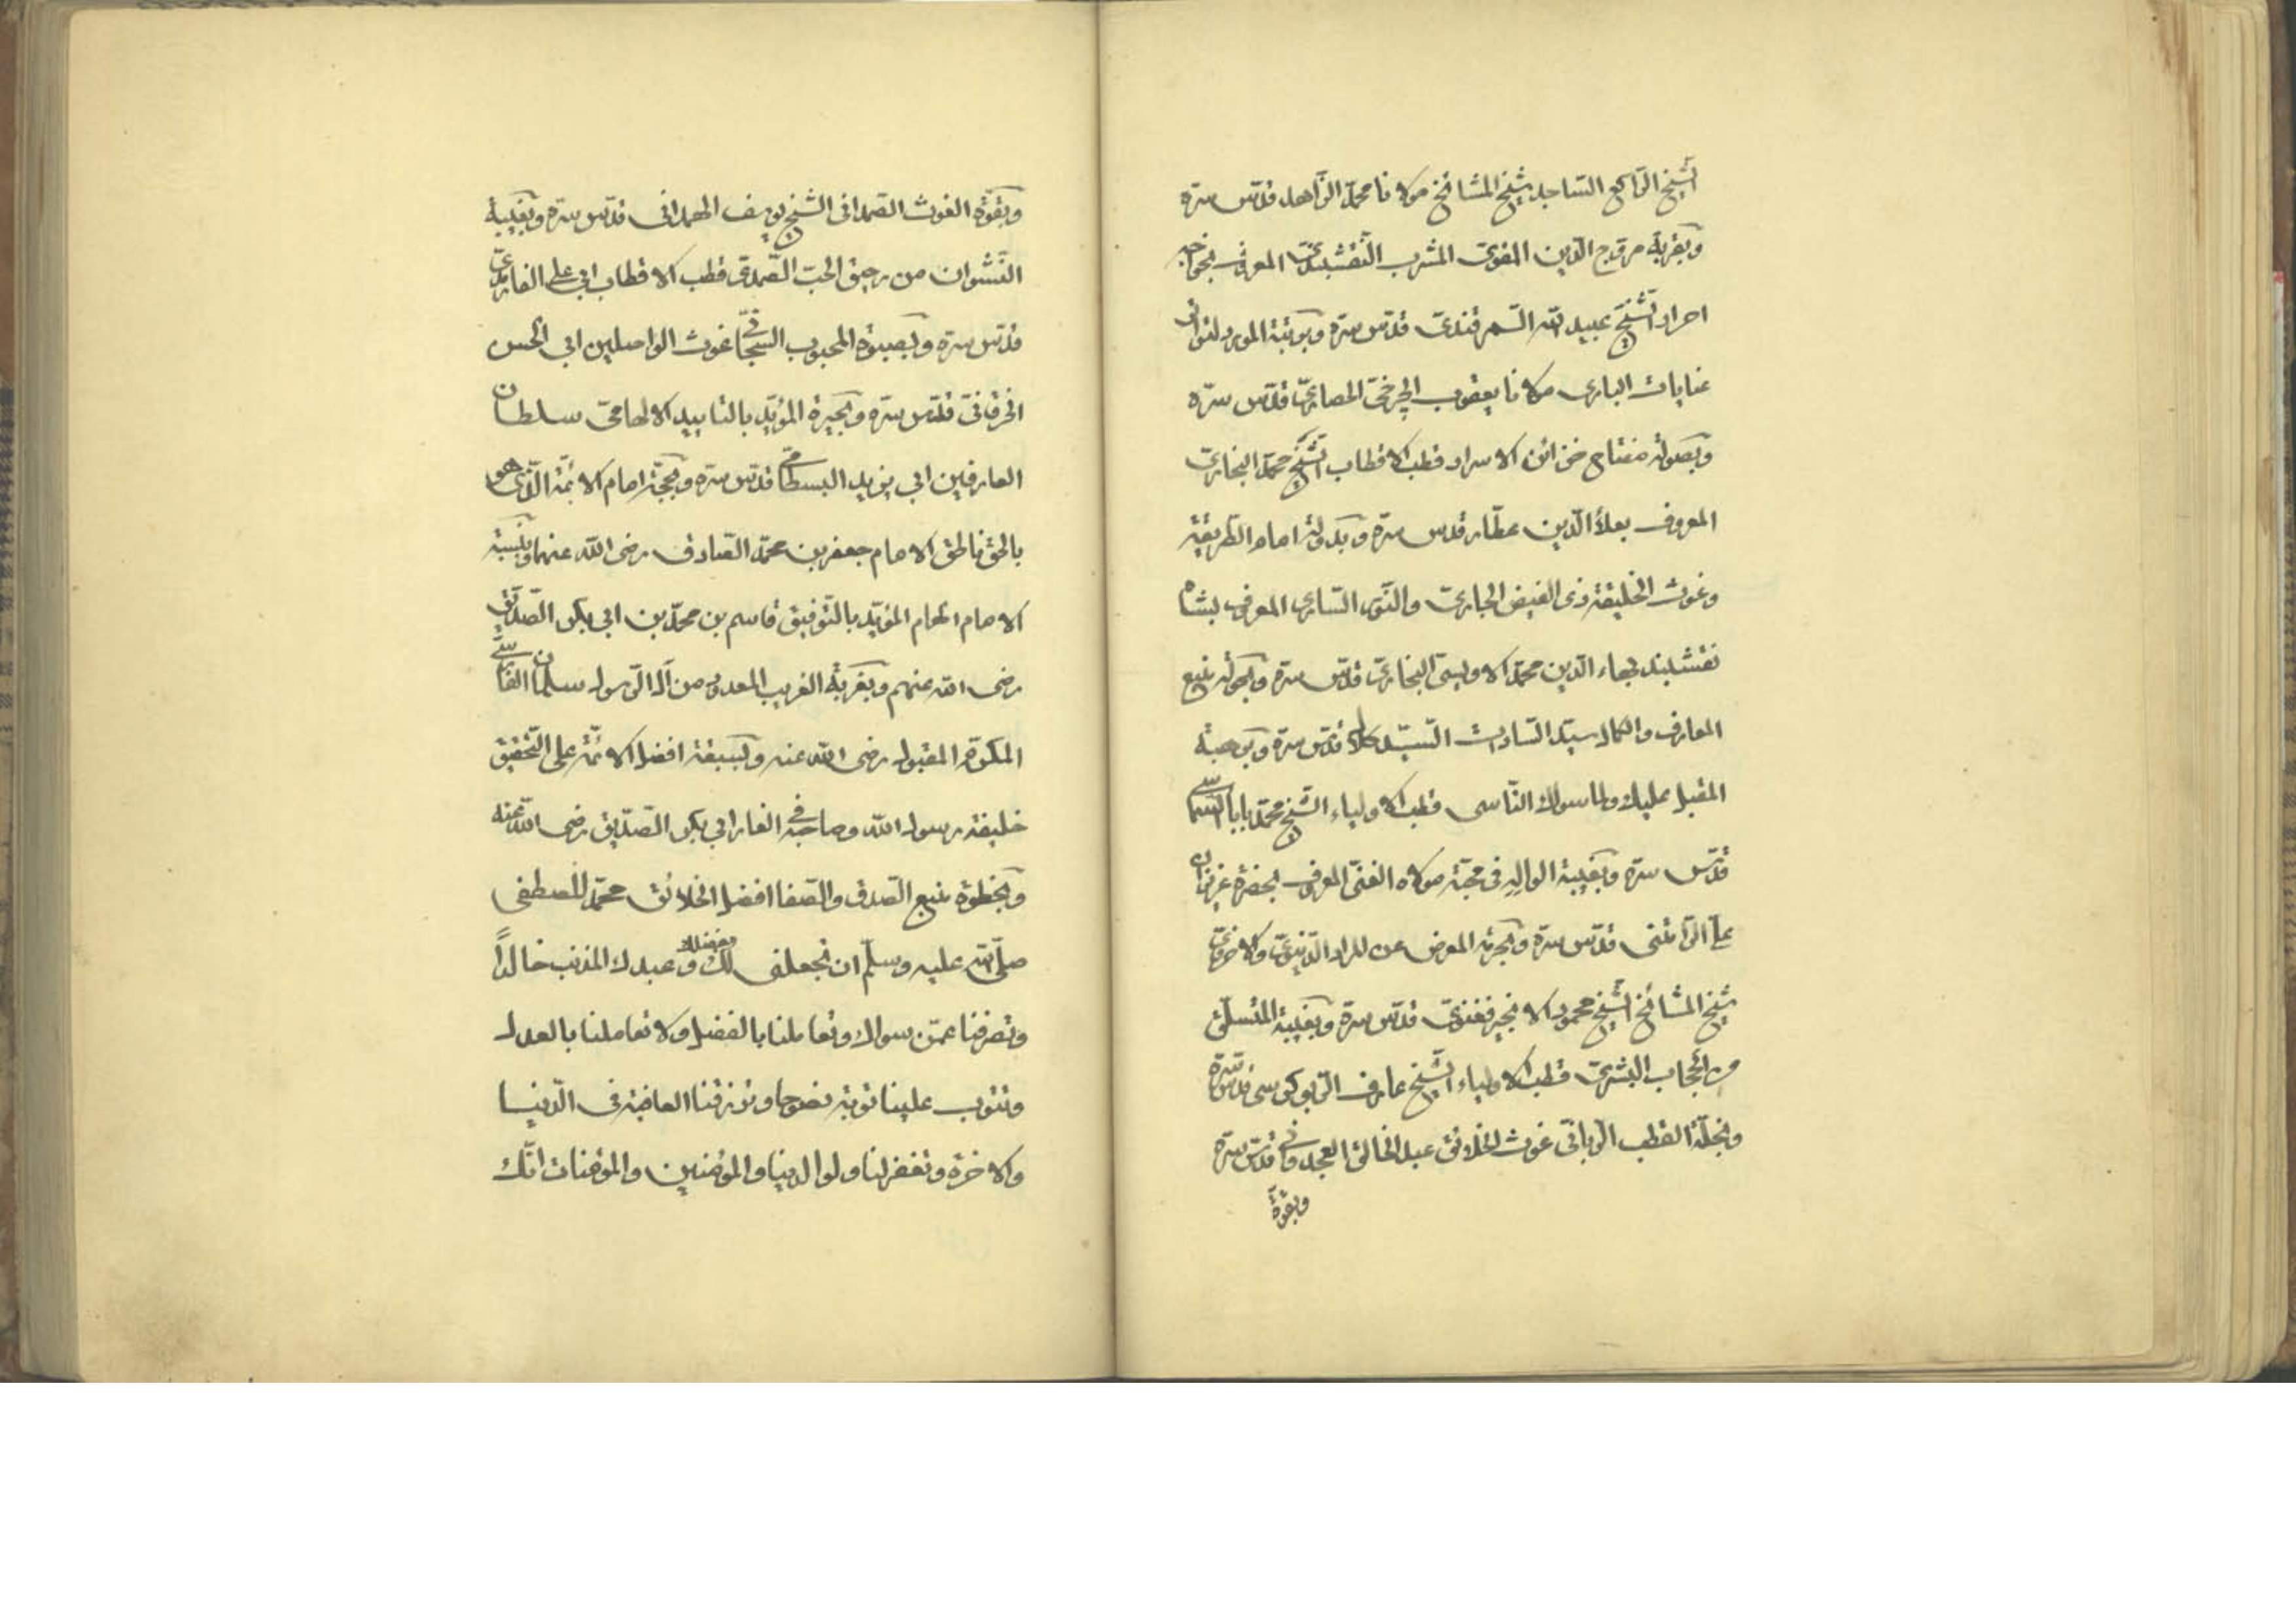 الشّيخ الرّاكع السّاجد شيخ المشائخ مولانا محمّد الزّاهد قدّس سرّه
وبقربة مروّج الدّين القوىّ المشرب النّقشبندىّ المعروف بخواجه
احرار الشّيخ عبيد الله السّمرقندىّ قدّس سرّه وبوئبة المورد لتواتر
عنايات البارى مولانا يعقوب الچرخىّ الحصارىّ قدّس سرّه
وبصولة مفتاح خزائن الاسرار قطب الاقطاب الشّيخ محمّد البخارىّ
المعروف بعلاء الدّين عطّار قدس سرّه وبدولة امام الطّريقة
وغوث الخليقة ذى الفيض الجارىّ والنّور السّارى المعروف بشاه
نقشبند بهاء الدّين محمّد الاويسىّ البخارىّ قدّس سرّه وبجولة منبع
المعارف والكمال سيّد السّادات السّيّد كلال قدّس سرّه وبموهبة
المقبل عليك ولما سواك النّاسى قطب الاولياء الشّيخ محمّد بابا السّماسىّ
قدّس سرّه وبغيبة الواله فى محبّة مولاه الغنىّ المعروف بحضرة عزيزان
علىّ الرّامتنى قدّس سرّه وبجرئة المعرض عن المراد الدّنيوىّ والاخروىّ
شيخ المشائخ الشّيخ محمود الانجيرفغنوىّ قدّس سرّه وبغيبة المنسلخ
من الحجاب البشرىّ قطب الاولياء الشّيخ عارف الرّيوكرى قدّس سرّه
وبخلّة القطب الرّبانّى غوث الخلائق عبد الخالق الغجدوانى قدّس سرّه
وبقوّة
وبقوّة الغوث الصّمدانى الشّيخ يوسف الهمدانى قدّس سرّه وبغيبة
النّشوان من رحيق الحبّ الصّمدىّ قطب الاقطاب ابى على الفارمدىّ
قدّس سرّه وبصبوة المحبوب السّبحّانى غوث الواصلين ابى الحسن
الخرقانىّ قدّس سرّه وبحيرة المؤيّد بالتاييد الالهامىّ سلطان
العارفين ابى يزيد البسطامّى قدّس سرّه وبحجّة امام الائمّة الّذى هو
بالحقّ ناطق الامام جعفر بن محمّد الصّادق رضى الله عنهما وبنسبة
الامام الهمام المؤيّد بالتّوفيق قاسم بن محمّد بن ابى بكر الصّدّيق
رضى الله عنهم وبغربة الغريب المعدود من آل الرّسول سلمان الفارسىّ
المكرّم المقبول رضى الله عنه وبسبقة افضل الائمّة على التّحقيق
خليفة رسول الله وصاحبه فى الغار ابى بكر الصّدّيق رضى الله عنه
وبحظوة منبع الصّدق والصّفا افضل الخلائق محمّد المصطفى
صلّى الله عليه وسلّم ان تجعلنى بفضلك لك و عبدك المذنب خالداً
وتصرفنا عمّن سواك وتعاملنا بالفضل ولا تعاملنا بالعدل
وتتوب علينا توبة نصوحا وترزقنا العافية فى الدّنيا
والاخرة وتغفر لنا ولوالدينا والمؤمنين والمؤمنات انّك